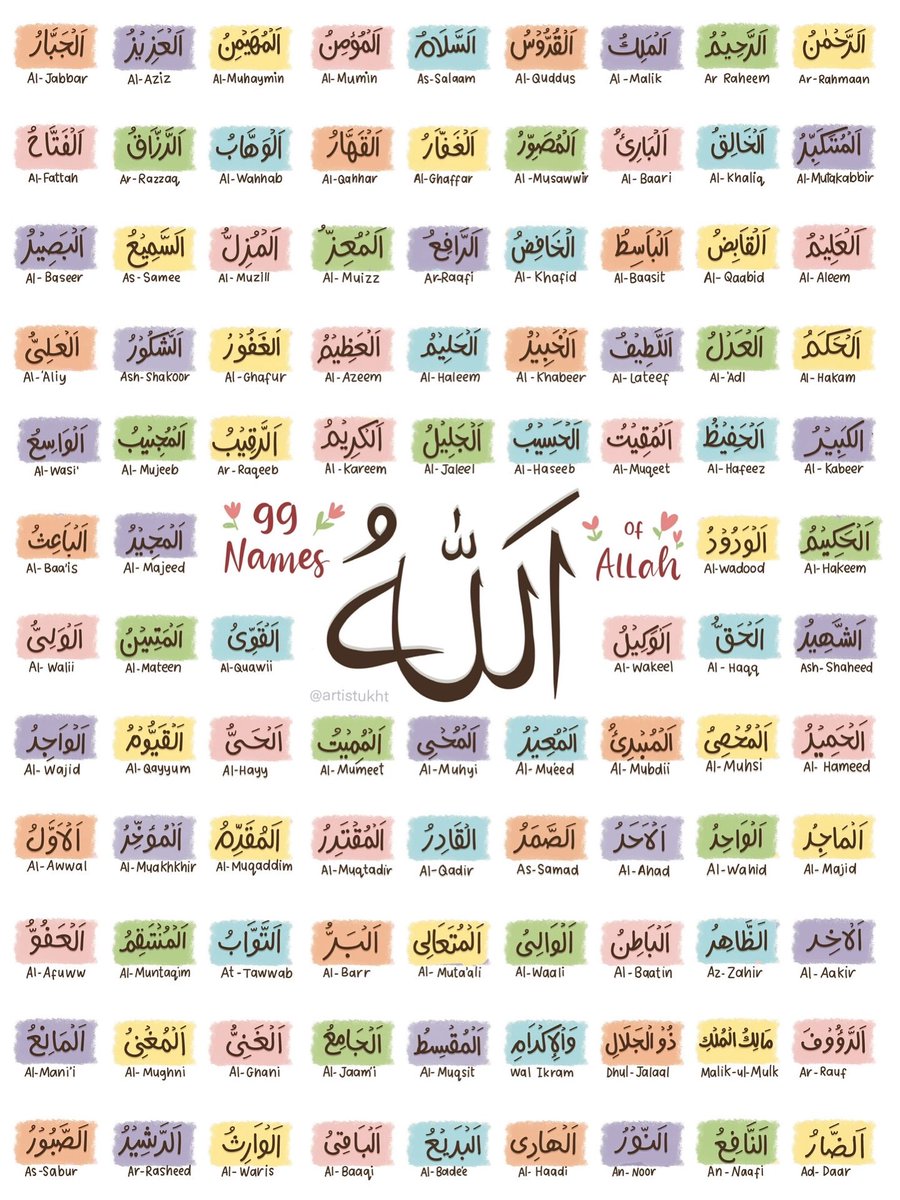 اَلرَّحْمٰنُ
Ar-Rahmaan
اَلرَّحِيْمُ
Ar Raheem
اَلْمَلِكُ
Al-Malik
اَلْقُدُّوْسُ
Al-Quddus
اَلسَّلَامُ
As-Salaam
اَلْمُؤْمِنُ
Al-Mumin
اَلْمُهَيْمِنُ
Al-Muhaymin
اَلْعَزِيْزُ
Al-Aziz
اَلْجَبَّارُ
Al-Jabbar
اَلْمُتَكَبِّرُ
Al-Mutakabbir
اَلْخَالِقُ
Al-Khaliq
اَلْبَارِئُ
Al-Baari
اَلْمُصَوِّرُ
Al-Musawwir
اَلْغَفَّارُ
Al-Ghaffar
اَلْقَهَّارُ
Al-Qahhar
اَلْوَهَّابُ
Al-Wahhab
اَلرَّزَّاقُ
Ar-Razzaq
اَلْفَتَّاحُ
Al-Fattah
اَلْعَلِيْمُ
Al-Aleem
اَلْقَابِضُ
Al-Qaabid
اَلْبَاسِطُ
Al-Baasit
اَلْخَافِضُ
Al-Khafid
اَلرَّافِعُ
Ar-Raafi
اَلْمُعِزُّ
Al-Muizz
اَلْمُزِلُّ
Al-Muzill
اَلسَّمِيْعُ
As-Samee
اَلْبَصِيْرُ
Al-Baseer
اَلْحَكَمُ
Al-Hakam
اَلْعَدْلُ
Al-'Adl
اَللَّطِيْفُ
Al-Lateef
اَلْخَبِيْرُ
Al-Khabeer
اَلْحَلِيْمُ
Al-Haleem
اَلْعَظِيْمُ
Al-Azeem
اَلْغَفُوْرُ
Al-Ghafur
اَلشَّكُوْرُ
Ash-Shakoor
اَلْعَلِىُّ
Al-'Aliy
اَلْكَبِيْرُ
Al-Kabeer
اَلْحَفِيْظُ
Al-Hafeez
اَلْمُقِيْتُ
Al-Muqeet
اَلْحَسِيْبُ
Al-Haseeb
اَلْجَلِيْلُ
Al-Jaleel
اَلْكَرِيْمُ
Al-Kareem
اَلرَّقِيْبُ
Ar-Raqeeb
اَلْمُجِيْبُ
Al-Mujeeb
اَلْوَاسِعُ
Al-Wasi'
اَلْحَكِيْمُ
Al-Hakeem
اَلْوَدُوْدُ
Al-wadood
99
Names
اَللّٰهُ
of
Allah
@artistukht
اَلْمَجِيْدُ
Al-Majeed
اَلْبَاعِثُ
Al-Baa'is
اَلشَّهِيْدُ
Ash-Shaheed
اَلْحَقُّ
Al-Haqq
اَلْوَكِيْلُ
Al-Wakeel
اَلْقَوِىُّ
Al-Quawii
اَلْمَتِيْنُ
Al-Mateen
اَلْوَلِىُّ
Al-Walii
اَلْحَمِيْدُ
Al-Hameed
اَلْمُحْصِىُ
Al-Muhsi
اَلْمُبْدِئُ
Al-Mubdii
اَلْمُعِيْدُ
Al-Mu'eed
اَلْمُحْىِ
Al-Muhyi
اَلْمُمِيْتُ
Al-Mumeet
اَلْحَىُّ
Al-Hayy
اَلْقَيُّوْمُ
Al-Qayyum
اَلْوَاجِدُ
Al-Wajid
اَلْمَاجِدُ
Al-Majid
اَلْوَاحِدُ
Al-Wahid
اَلْاَحَدُ
Al-Ahad
اَلصَّمَدُ
As-Samad
اَلْقَادِرُ
Al-Qadir
اَلْمُقْتَدِرُ
Al-Muqtadir
اَلْمُقَدِّمُ
Al-Muqaddim
اَلْمُؤَخِّرُ
Al-Muakhkhir
اَلْاَوَّلُ
Al-Awwal
اَلْاٰخِرُ
Al-Aakir
اَلظَّاهِرُ
Az-Zahir
اَلْبَاطِنُ
Al-Baatin
اَلْوَالِىُ
Al-Waali
اَلْمُتَعَالِى
Al-Muta'ali
اَلْبَرُّ
Al-Barr
اَلتَّوَّابُ
At-Tawwab
اَلْمُنْتَقِمُ
Al-Muntaqim
اَلْعَفُوُّ
Al-Afuww
اَلرَّؤُوْفُ
Ar-Rauf
مَالِكُ الْمُلْكِ
Malik-ul-Mulk
ذُو الْجَلَالِ
Dhul-Jalaal
وَالْاِكْرَامِ
Wal Ikram
اَلْمُقْسِطُ
Al-Muqsit
اَلْجَامِعُ
Al-Jaam'i
اَلْغَنِىُّ
Al-Ghani
اَلْمُغْنِىُ
Al-Mughni
اَلْمَانِعُ
Al-Mani'i
اَلضَّارُ
Ad-Daar
اَلنَّافِعُ
An-Naafi
اَلنُّوْرُ
An-Noor
اَلْهَادِى
Al-Haadi
اَلْبَدِيْعُ
Al-Badee
اَلْبَاقِىُ
Al-Baaqi
اَلْوَارِثُ
Al-Waris
اَلرَّشِيْدُ
Ar-Rasheed
اَلصَّبُوْرُ
As-Sabur